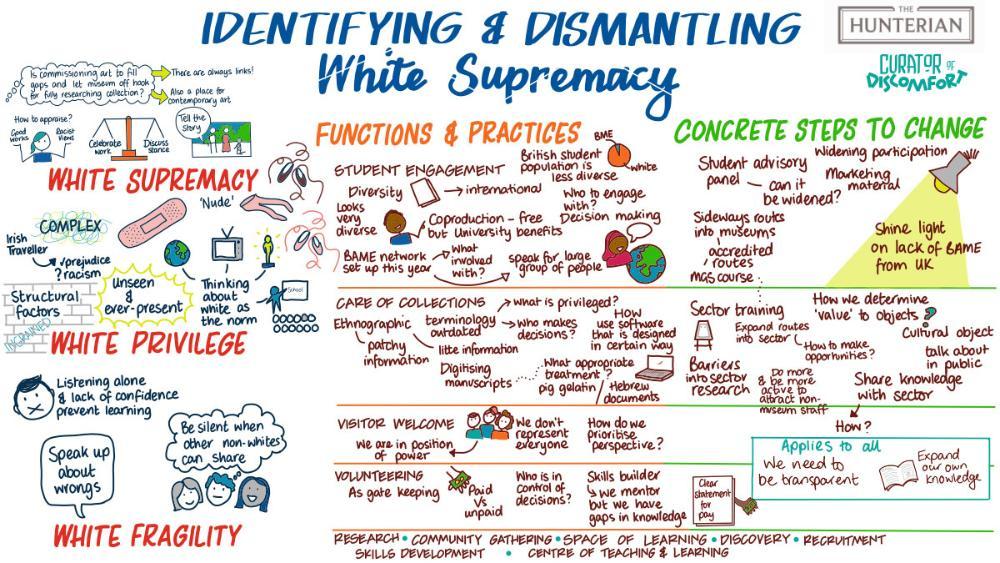 IDENTIFYING & DISMANTLING
White Supremacy
THE
HUNTERIAN
CURATOR OF
DISCOMFORT
Is commissioning art to fill
gaps and let museum off hook
for fully researching collection?
There are always links!
Also a place for
contemporary art
How to appraise?
Good
works
Racist
views
Celebrate
work
Discuss
stance
Tell the
story
WHITE SUPREMACY
'Nude'
COMPLEX
Irish
Traveller
prejudice
? racism
Structural
factors
INGRAINED
Unseen
&
ever-present
Thinking
about
white as
the norm
School
WHITE PRIVILEGE
Listening alone
& lack of confidence
prevent learning
Speak up
about
wrongs
Be silent when
other non-whites
can share
WHITE FRAGILITY
FUNCTIONS & PRACTICES
STUDENT ENGAGEMENT
British student
population is
less diverse
BME
white
Diversity
international
Looks
very
diverse
Coproduction - free
but University benefits
Who to engage
with?
Decision making
BAME network
set up this year
What
involved
with?
speak for large
group of people
CARE OF COLLECTIONS
Ethnographic
patchy
information
terminology
outdated
little information
What is privileged?
Who makes
decisions?
How
use software
that is designed
in certain way
Digitising
manuscripts
What appropriate
treatment?
pig gelatin / Hebrew
documents
VISITOR WELCOME
We are in position
of power
We don't
represent
everyone
How do we
prioritise
perspective?
VOLUNTEERING
As gate keeping
Paid
Vs
unpaid
Who is in
control of
decisions?
Skills builder
we mentor
but we have
gaps in knowledge
CONCRETE STEPS TO CHANGE
Student advisory
panel
can it
be widened?
Widening participation
Marketing
material
Sideways routes
into museums
accredited
routes
MGS course
Shine light
on lack of BAME
from UK
Sector training
Expand routes
into sector
How to make
opportunities?
How we determine
'value' to objects?
Cultural object
talk about
in public
Barriers
into sector
research
Do more
& be more
active to
attract non-
museum staff
Share knowledge
with sector
How?
Applies to all
We need to
be transparent
Expand
our own
knowledge
Clear
statement
for
pay
RESEARCH • COMMUNITY GATHERING • SPACE OF LEARNING • DISCOVERY • RECRUITMENT
SKILLS DEVELOPMENT • CENTRE OF TEACHING & LEARNING